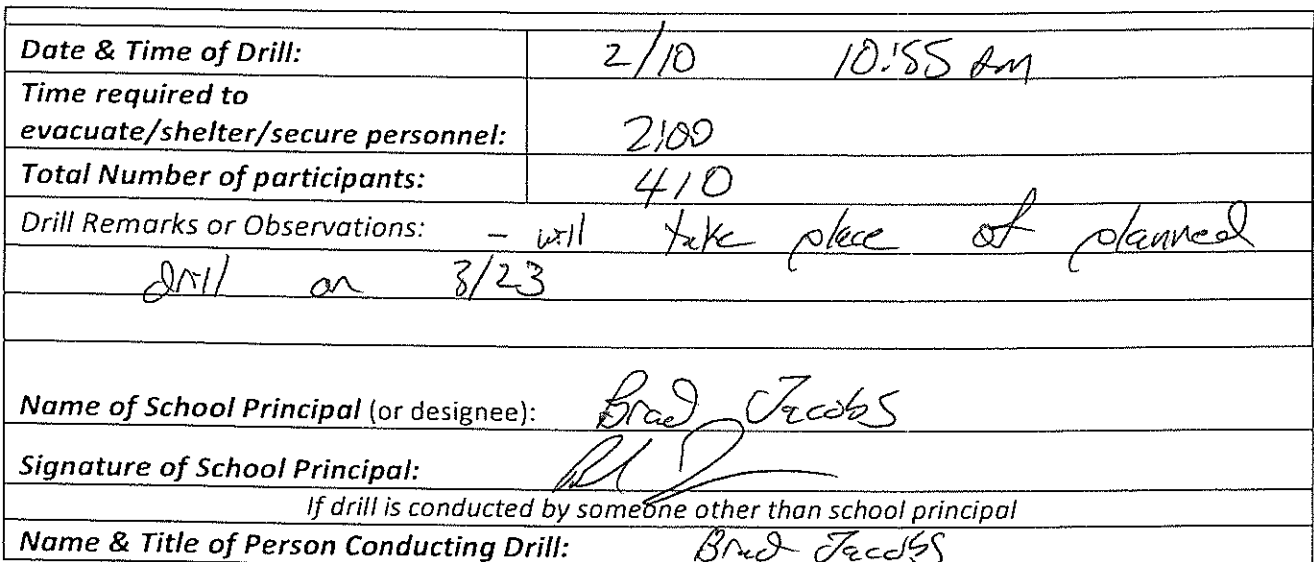 Date & Time of Drill: 2/10 10:55 am
Time required to
evacuate/shelter/secure personnel: 2:00
Total Number of participants: 410
Drill Remarks or Observations: - will take place of planned
drill on 3/23
Name of School Principal (or designee): Brad Jacobs
Signature of School Principal:
If drill is conducted by someone other than school principal
Name & Title of Person Conducting Drill: Brad Jacobs